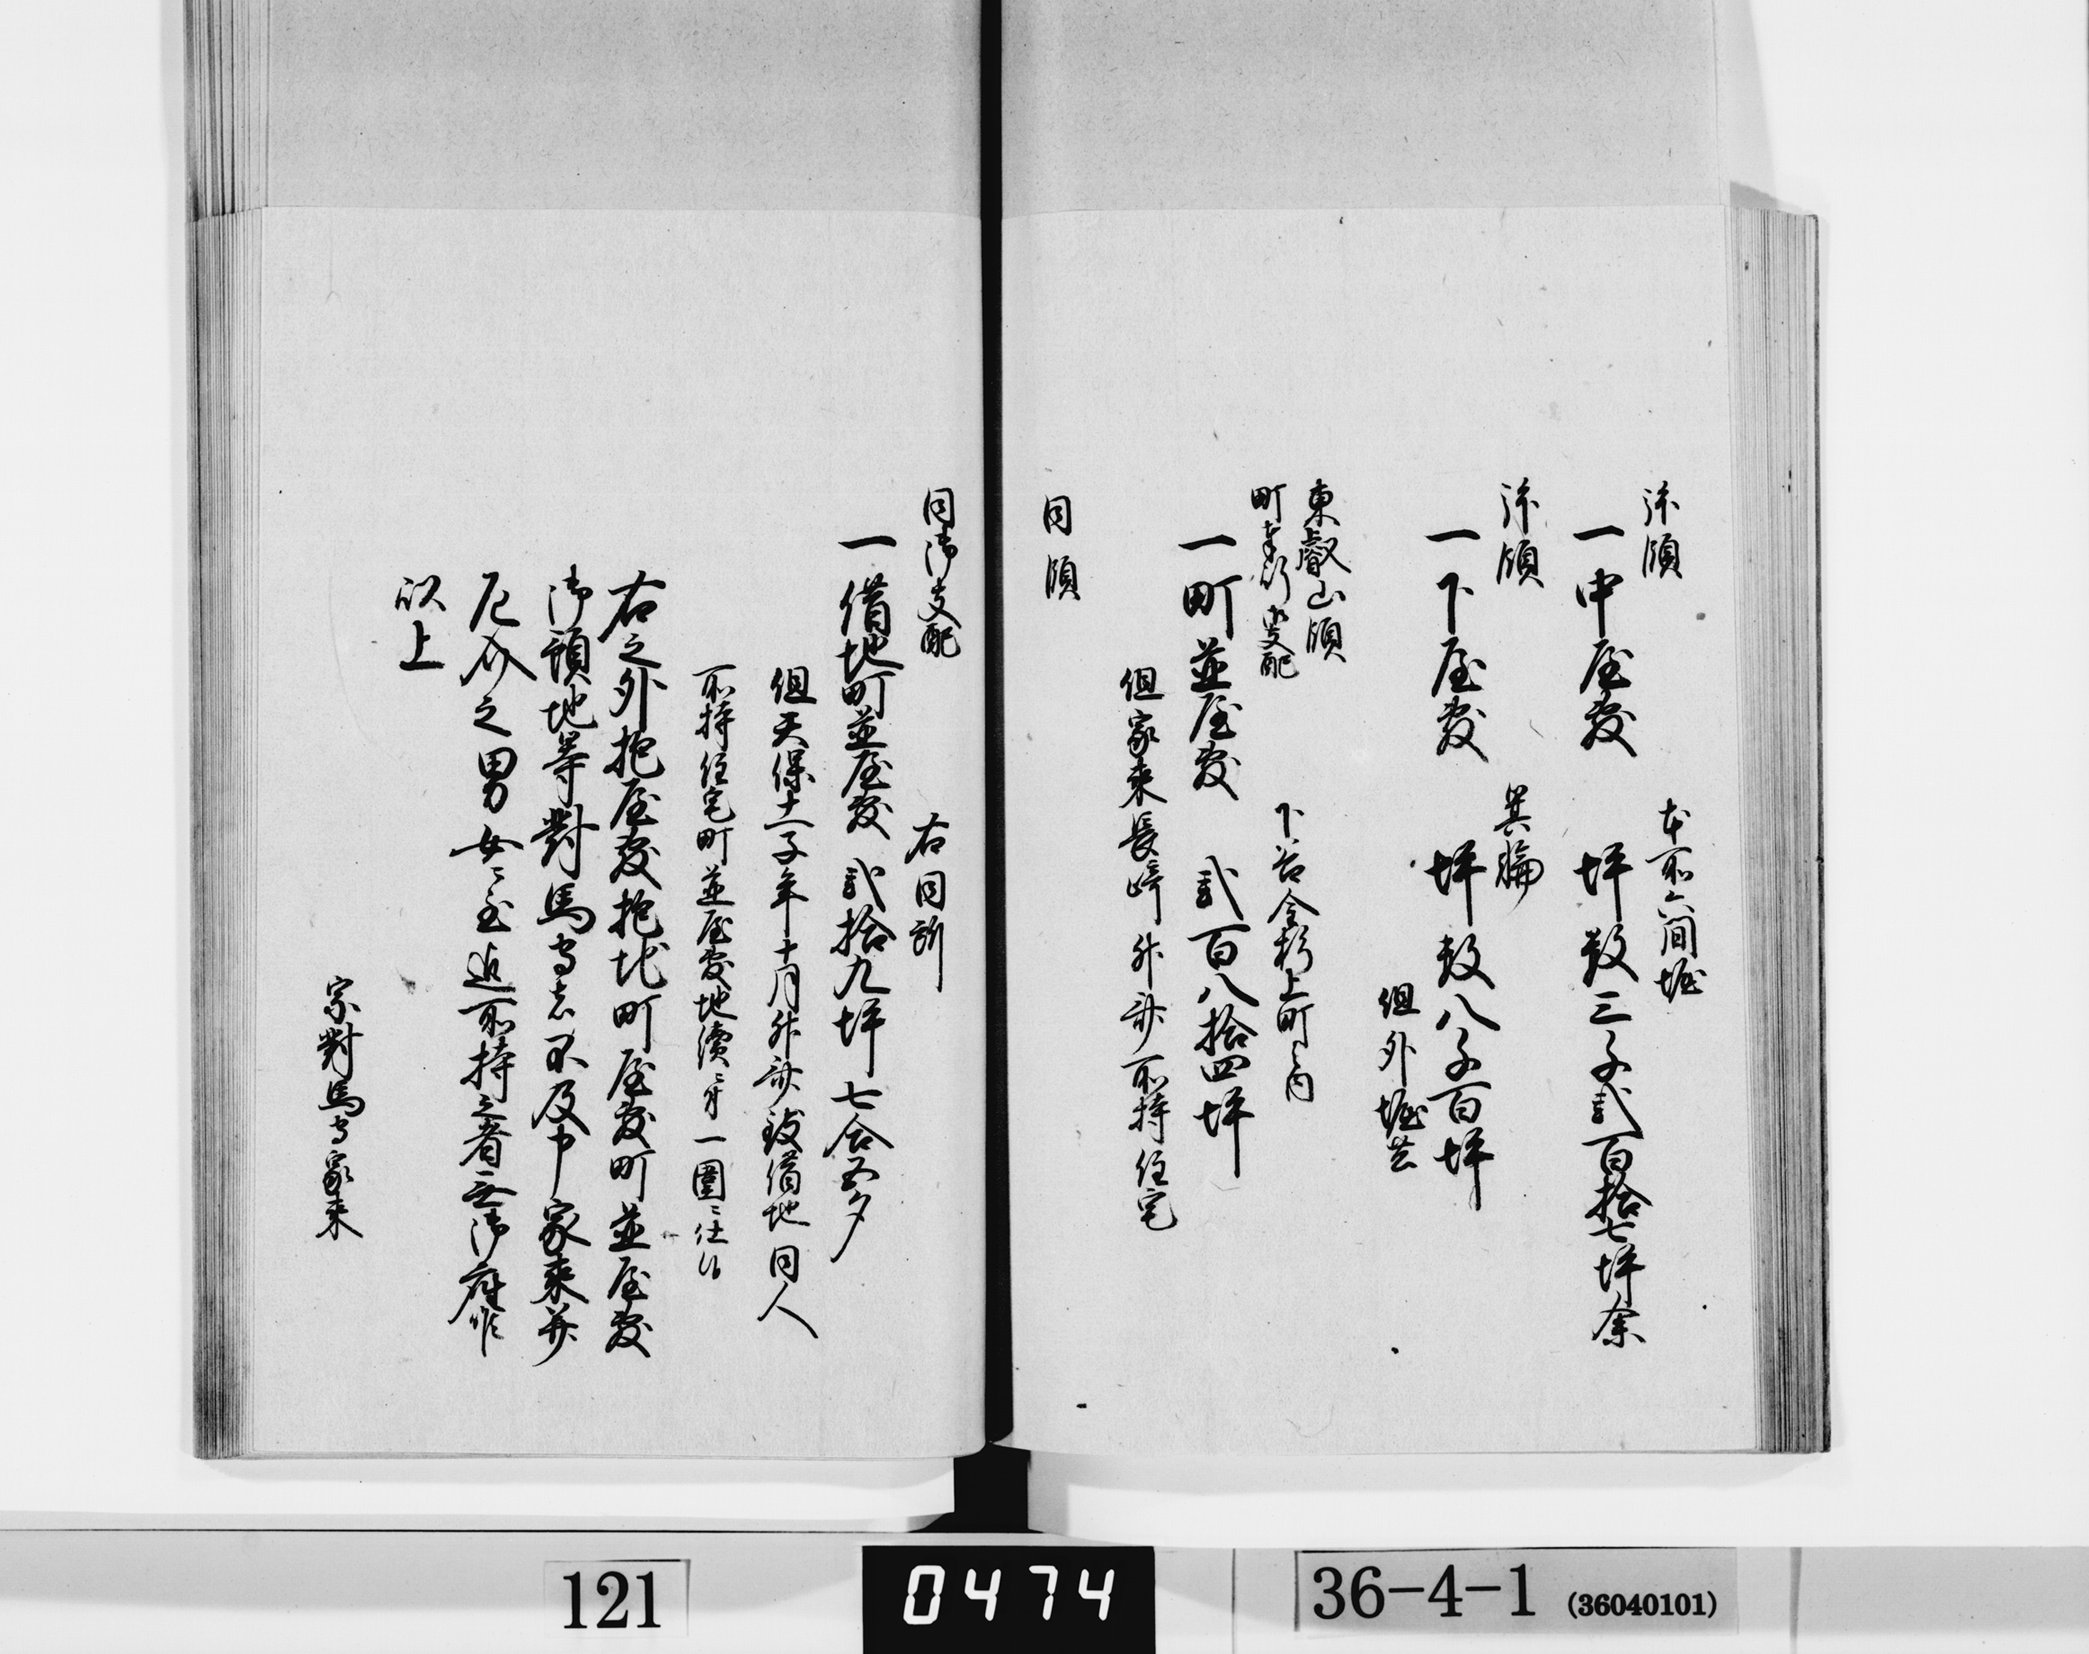 拝領
本所六間堀
一中屋敷　坪数三千弐百拾七坪余
拝領
箕輪
一下屋敷　坪数八千百坪
但外堀共
東叡山領
町奉行支配
下谷金杉上町之内
一町並屋敷　弐百八拾四坪
但家来長崎卯兵衛所持住宅
同領
同御支配
右同所
一借地町並屋敷　弐拾九坪七合五夕
但天保十一子年十月 致借地同人
所持住宅町並屋敷地続ニ付一圍ニ仕候
右之外抱屋敷抱地町屋敷町並屋敷
御預地等對馬守者不及申家来并
厄介之男女ニ至迄所持之者無御座候
以上
宗對馬守家来
121
0474
36-4-1 (36040101)